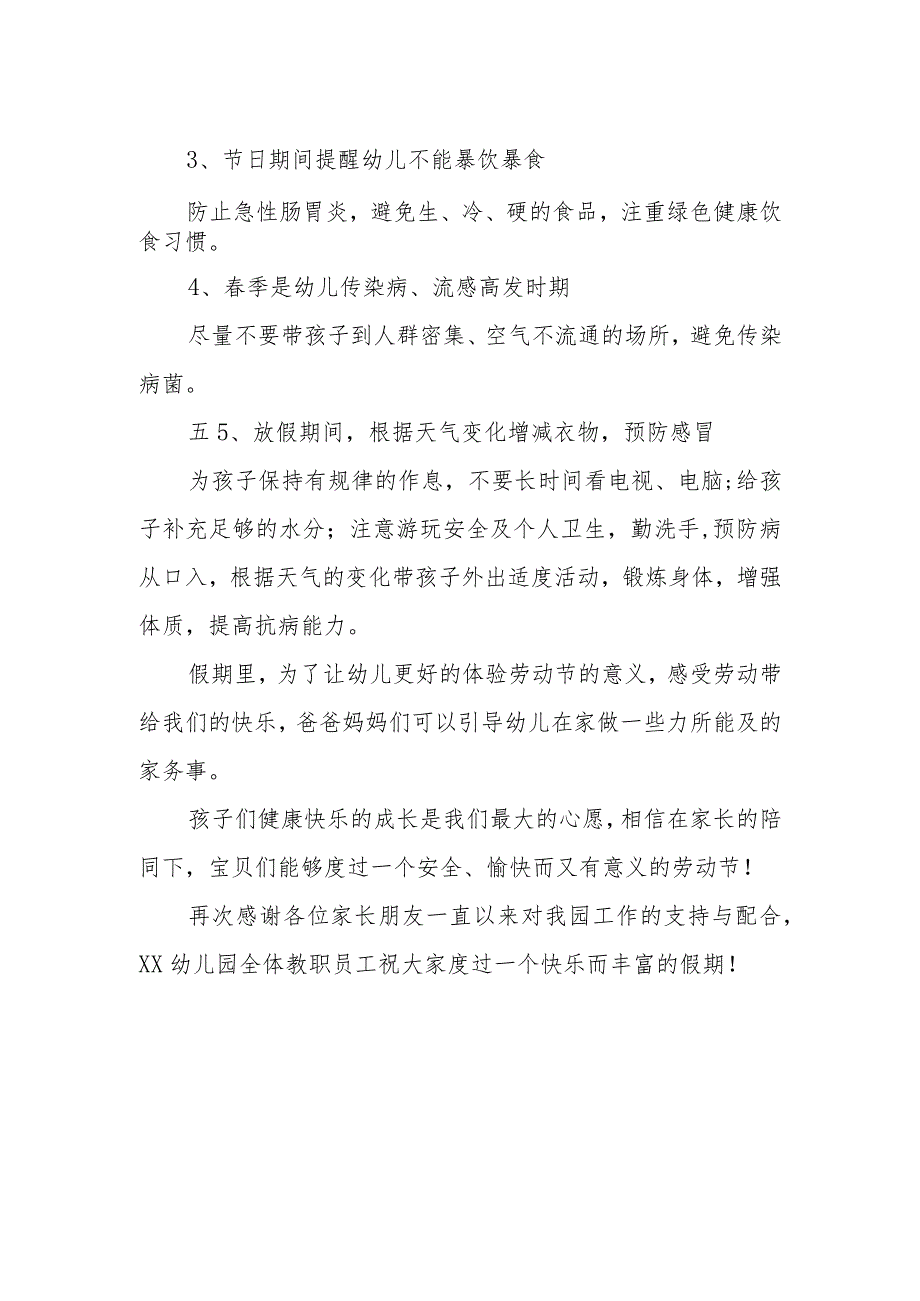 3、节日期间提醒幼儿不能暴饮暴食
防止急性肠胃炎，避免生、冷、硬的食品，注重绿色健康饮
食习惯。
4、春季是幼儿传染病、流感高发时期
尽量不要带孩子到人群密集、空气不流通的场所，避免传染
病菌。
五5、放假期间，根据天气变化增减衣物，预防感冒
为孩子保持有规律的作息，不要长时间看电视、电脑;给孩
子补充足够的水分；注意游玩安全及个人卫生，勤洗手,预防病
从口入，根据天气的变化带孩子外出适度活动，锻炼身体，增强
体质，提高抗病能力。
假期里，为了让幼儿更好的体验劳动节的意义，感受劳动带
给我们的快乐，爸爸妈妈们可以引导幼儿在家做一些力所能及的
家务事。
孩子们健康快乐的成长是我们最大的心愿，相信在家长的陪
同下，宝贝们能够度过一个安全、愉快而又有意义的劳动节！
再次感谢各位家长朋友一直以来对我园工作的支持与配合，
XX幼儿园全体教职员工祝大家度过一个快乐而丰富的假期！